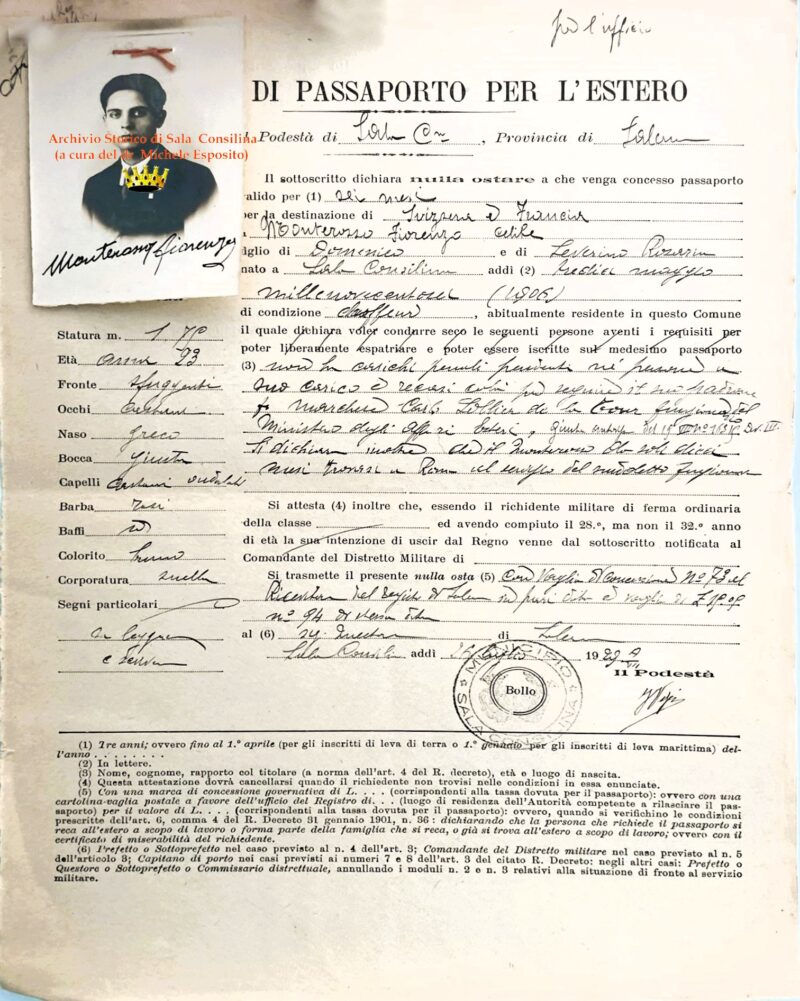 per l'ufficio
DI PASSAPORTO PER L'ESTERO
Archivio Storico di Sala Consilina
(a cura del dr. Michele Esposito)
l Podestà di Sala Cna, Provincia di Salerno
Il sottoscritto dichiara nulla ostare a che venga concesso passaporto
valido per (1) sei mesi
per la destinazione di Svizzera e Francia
Monterosso Fiorenzo
Monterosso Fiorenzo
figlio di Domenico e di Severino
nato a Sala Consilina addì (2) tredici maggio
millenovecentosei (1906)
di condizione chauffeur, abitualmente residente in questo Comune
il quale dichiara voler condurre seco le seguenti persone aventi i requisiti per
poter liberamente espatriare e poter essere iscritte sul medesimo passaporto
(3) non ha carichi penali pendenti né persone a
suo carico e recasi colà per seguire il suo padrone
marchese Carlo de la Tour funzionario del
Ministero degli Affari Esteri,
Si dichiara inoltre che il Monterosso da soli dieci
mesi trovasi a Roma al servizio del suddetto funzionario
Statura m. 1.70
Età anni 23
Fronte sfuggente
Occhi castani
Naso greco
Bocca giusta
Capelli castani ondulati
Barba rasa
Baffi id
Colorito bruno
Corporatura snella
Segni particolari
sa leggere
e scrivere
Si attesta (4) inoltre che, essendo il richidente militare di ferma ordinaria
della classe ed avendo compiuto il 28.°, ma non il 32.° anno
di età la sua intenzione di uscir dal Regno venne dal sottoscritto notificata al
Comandante del Distretto Militare di
Si trasmette il presente nulla osta (5) con Vaglia di Concessione No 73 al
Ricevitore del Registro di Salerno in pari data e vaglia di L
no 94 di stessa data
al (6) Sig. Questore di Salerno
Sala Consilina addì 26 luglio 1929
Il Podestà
MUNICIPIO
SALA CONSILINA
Bollo
(1) Tre anni; ovvero fino al 1.° aprile (per gli inscritti di leva di terra o 1.° gennaio per gli inscritti di leva marittima) del-
l'anno . . . . . . .
(2) In lettere.
(3) Nome, cognome, rapporto col titolare (a norma dell'art. 4 del R. decreto), età e luogo di nascita.
(4) Questa attestazione dovrà cancellarsi quando il richiedente non trovisi nelle condizioni in essa enunciate.
(5) Con una marca di concessione governativa di L. . . . (corrispondenti alla tassa dovuta per il passaporto): ovvero con una
cartolina-vaglia postale a favore dell'ufficio del Registro di. . . (luogo di residenza dell'Autorità competente a rilasciare il pas-
saporto) per il valore di L. . . . (corrispondenti alla tassa dovuta per il passaporto): ovvero, quando si verifichino le condizioni
prescritte dell'art. 6, comma 4 del R. Decreto 31 gennaio 1901, n. 36 : dichiarando che la persona che richiede il passaporto si
reca all'estero a scopo di lavoro o forma parte della famiglia che si reca, o già si trova all'estero a scopo di lavoro; ovvero con il
certificato di miserabilità del richiedente.
(6) Prefetto o Sottoprefetto nel caso previsto al n. 4 dell'art. 3; Comandante del Distretto militare nel caso previsto al n. 5
dell'articolo 3; Capitano di porto nei casi previsti ai numeri 7 e 8 dell'art. 3 del citato R. Decreto: negli altri casi: Prefetto o
Questore o Sottoprefetto o Commissario distrettuale, annullando i moduli n. 2 e n. 3 relativi alla situazione di fronte al servizio
militare.